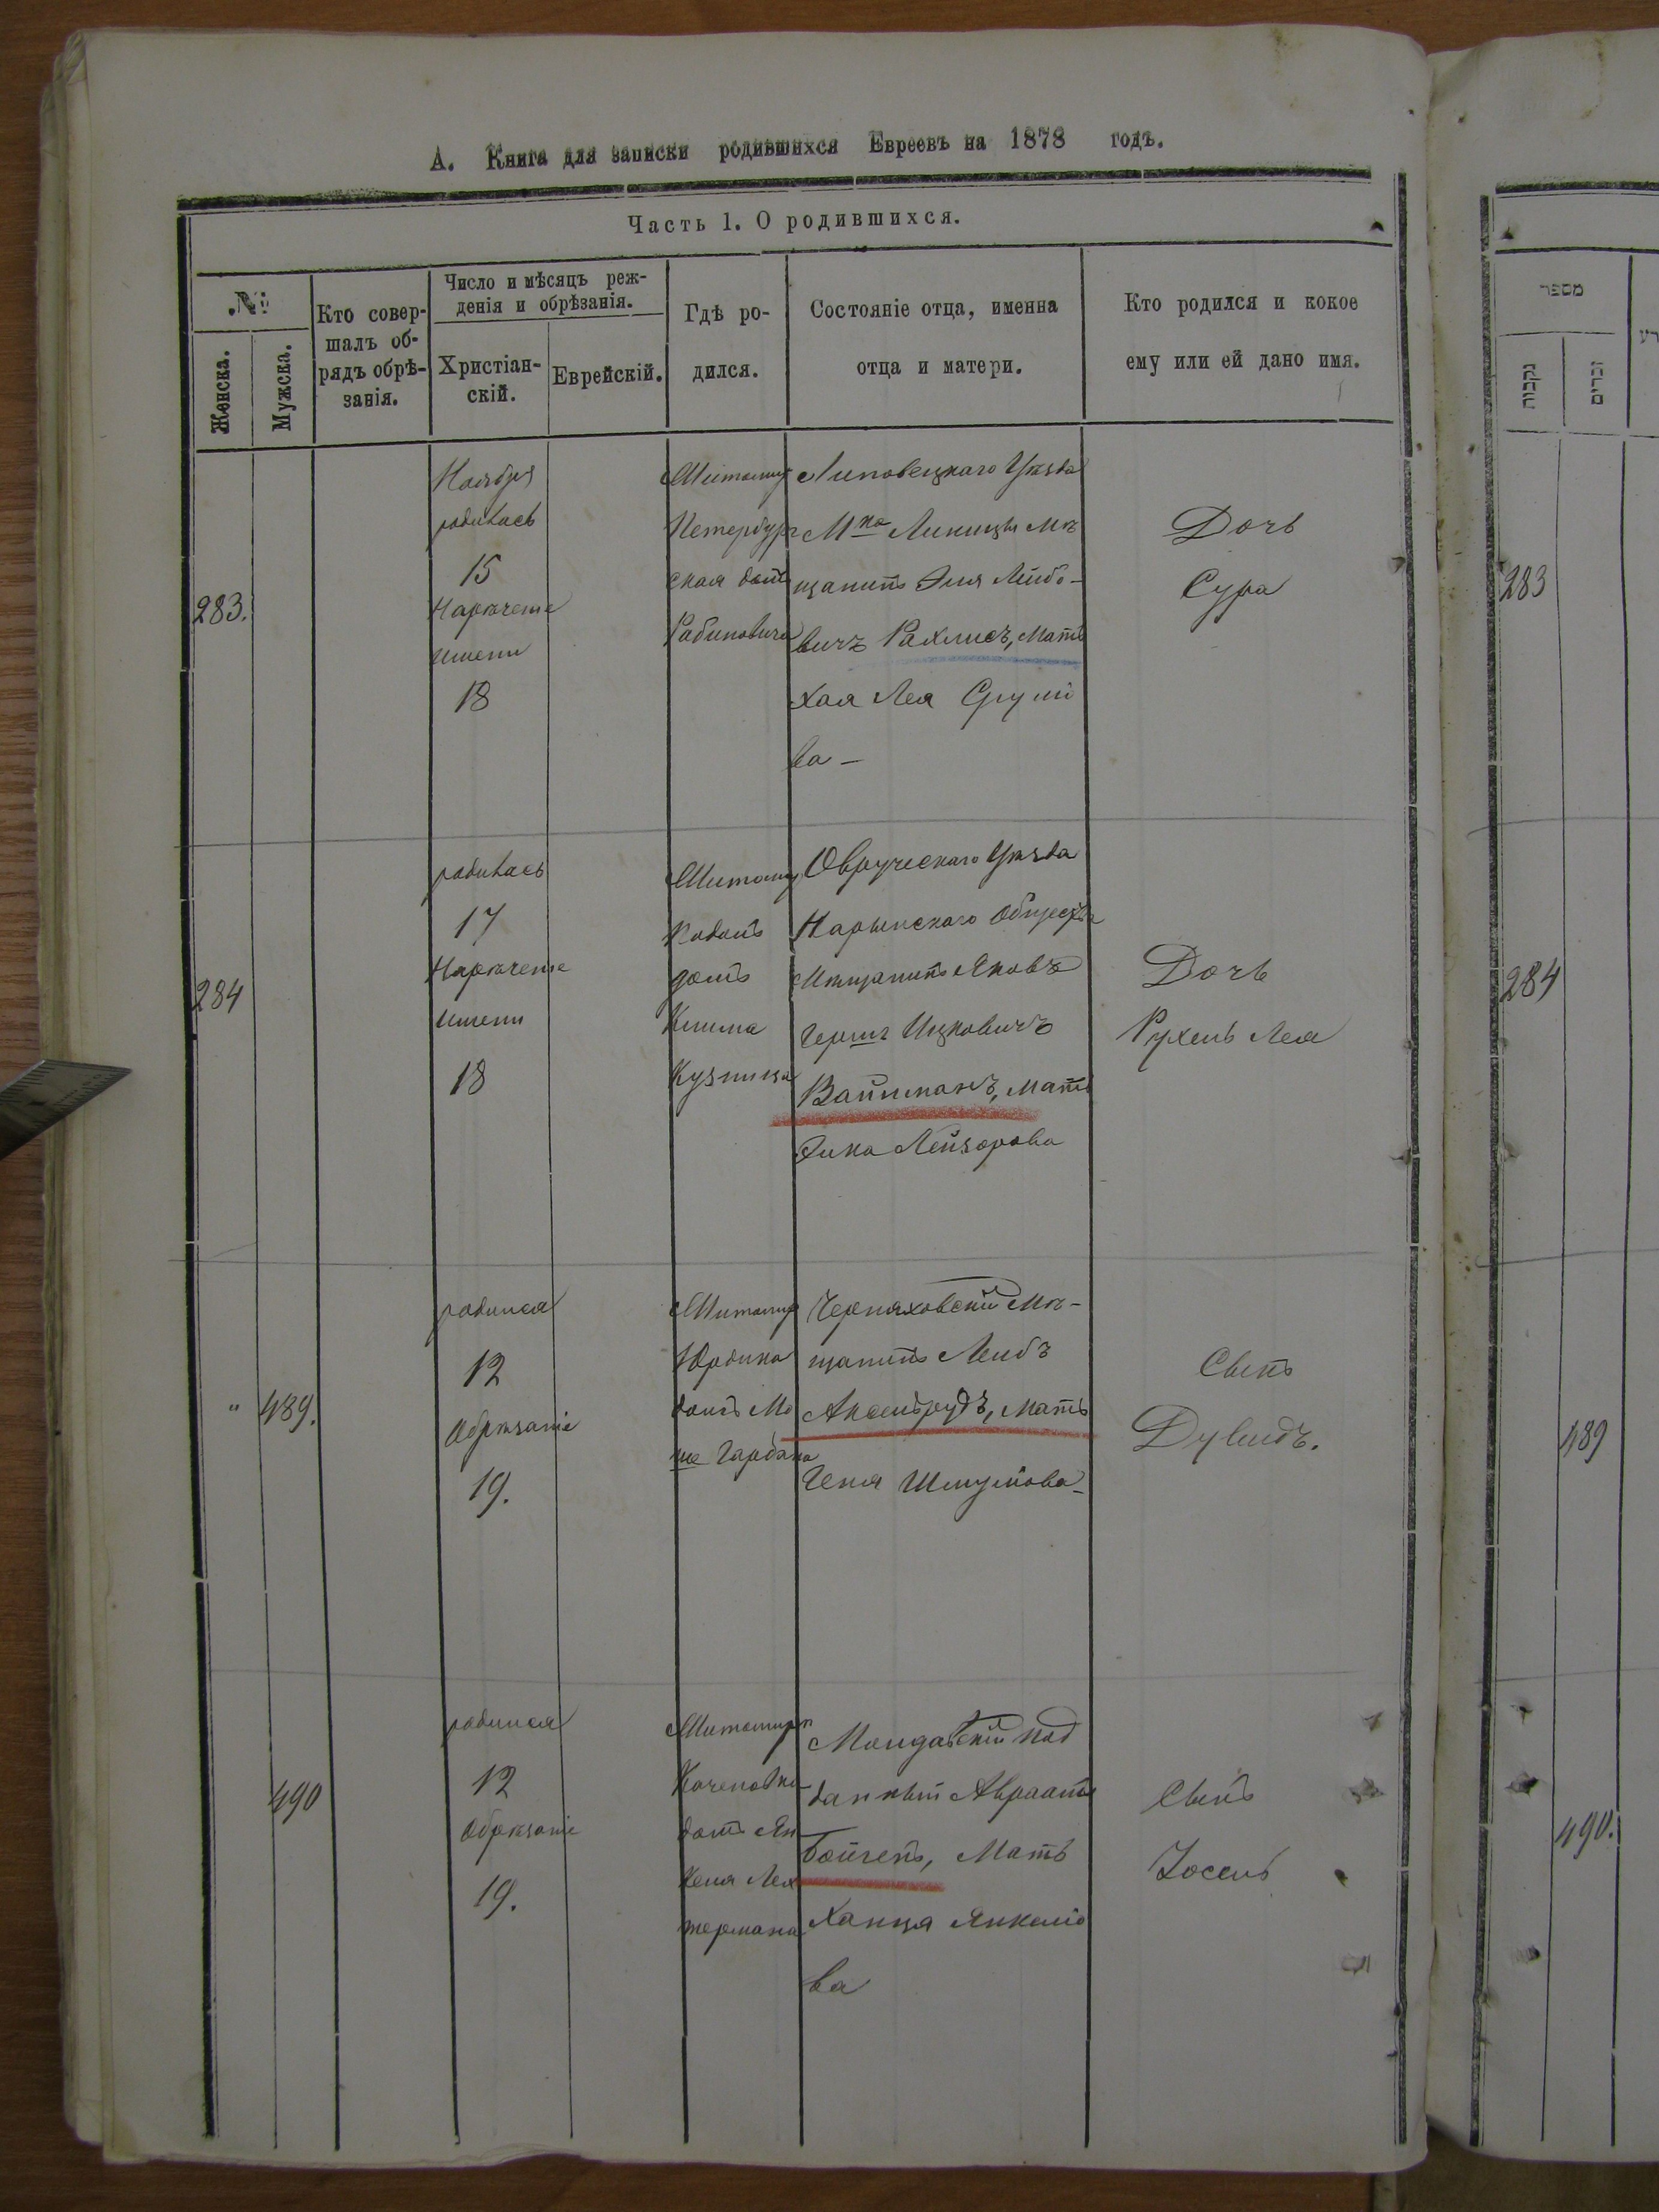 А. Книга для записки родившихся Евреевъ на 1878 годъ.
Часть 1. О родившихся.
№
Женска.
Мужска.
Кто совер-
шалъ об-
рядъ обрѣ-
занія.
Число и мѣсяцъ реж-
денія и обрѣзанія.
Христіан-
скій.
Еврейскій.
Гдѣ ро-
дился.
Состояніе отца, именна
отца и матери.
Кто родился и кокое
ему или ей дано имя.
283.
Ноября
родилась
15
Нареченіе
имени
18
Житомир
Петербург
ская домъ
Рабиновича
Липовецкаго Уѣзда
Мка Линицы Мѣ
щанинъ Эля Лейбо-
вичъ Рахлисъ, Мать
Хая Лея Срулю
ва -
Дочь
Сура
284
родилась
17
Нареченіе
имени
18
Житомир
домъ
Кузница
Овручскаго Уѣзда
Нарынскаго Общества
Мѣщанинъ Яковъ
Гершъ Ицковичъ
Вайнманъ, Мать
Лейзорова
Дочь
Рухель Лея
" 489.
родился
12
Обрѣзаніе
19.
Житомир
домъ Мо
ше
Черняховскій Мѣ-
щанинъ Лейбъ
Аксельрудъ, Мать
Геня Шмулiова
Сынъ
Дувидъ.
490
родился
12
Обрѣзаніе
19.
Житомир
домъ Ян
келя
Молдавскій под
данный Авраамъ
Бойчекъ, Мать
Ханця Янкелiо
ва
Сынъ
Іосель
מספר
נקבות
זכרים
283
284
489
490.